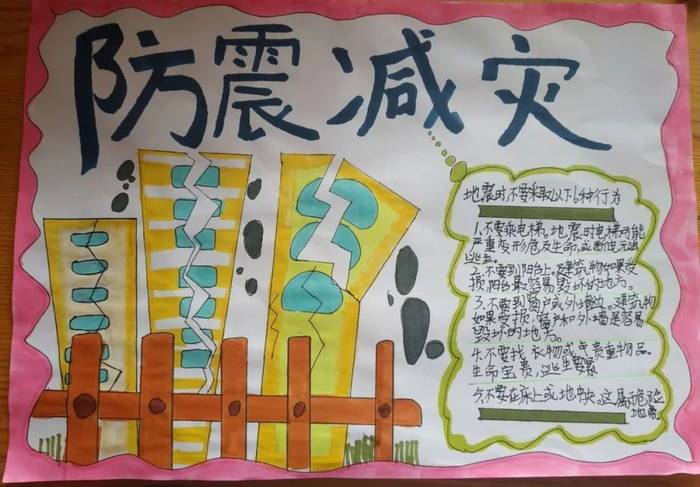 防震减灾
地震时不要采取以下种行为
1.不要乘电梯。地震时电梯可能
严重变形危及生命。或断电无法
逃生。
2.不要到阳台上。建筑物如果受
损阳台最容易毁坏的地方。
3.不要到窗户或外墙边。建筑物
如果受损窗户和外墙是容易
毁坏的地方。
4.不要找衣物或贵重物品。
生命宝贵,逃生要紧
5不要在床上或地中央。这属危险
地带